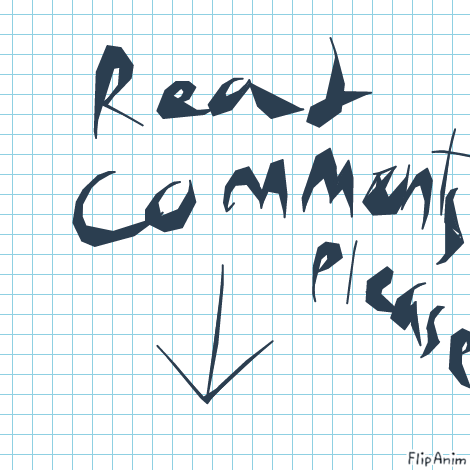 Read
comments
please
FlipAnim